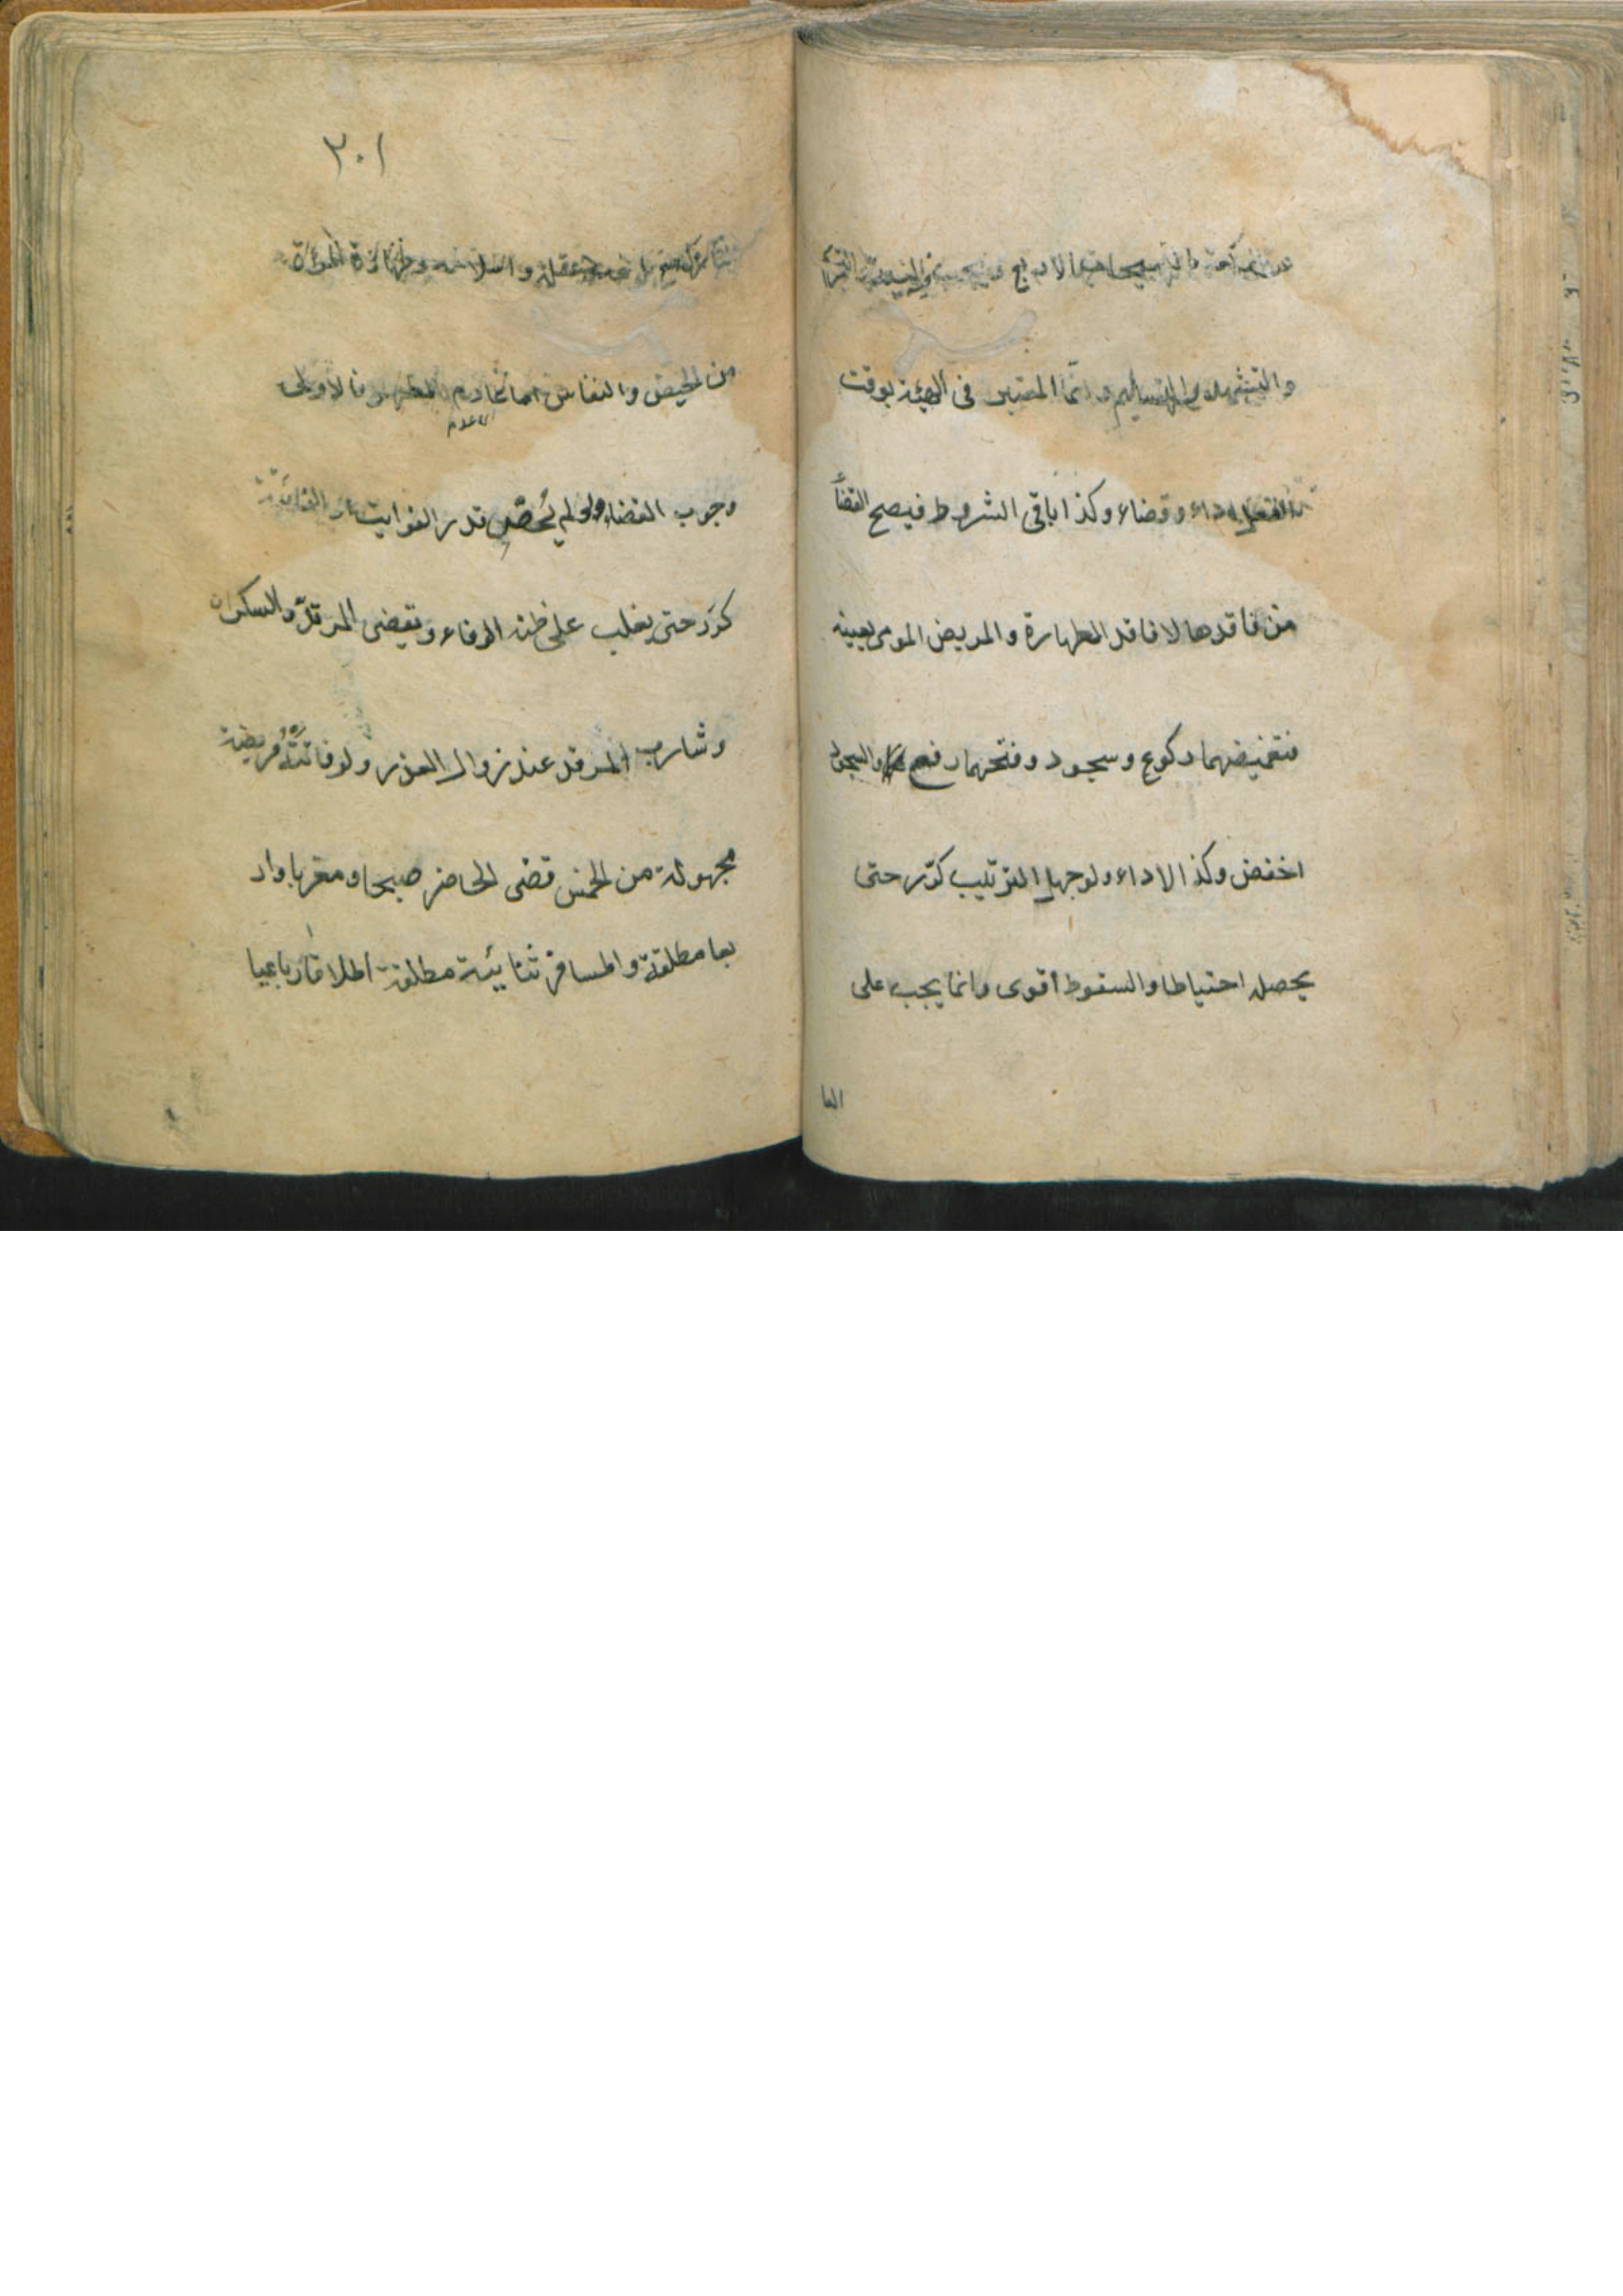 بالتسبيحات الاربع
والتشهد والتسليم وانما المعتبر فى الهيئة بوقت
الفعل اداء وقضاء وكذا باقى الشروط فيصح القضأ
من فاقدها لا فاقد الطهارة والمريض المومى بعينه
فتغميضهما ركوع وسجود وفتحهما رفع والسجود
اخفض وكذا الاداء ولو جهل الترتيب كرّر حتى
يحصل احتياطا والسقوط أقوى وانما يجب على
التا
٢٠١
التارك مع عقله واسلامه وطهارة المرأة
من الحيض والنفاس اما عادم المطهر فالاولى
وجوب القضاء ولو لم يُحصّل قدر الفوايت او الفائتة
كرّر حتى يغلب على ظنه الوفاء ويقضى المرتدّ والسكران
وشارب المرقد عند زوال العذر ولو فاتته فريضة
مجهولة من الخمس قضى الحاضر صبحا ومغربا وار
بعا مطلقة والمسافر ثنائية مطلقة اطلاقا رباعيا